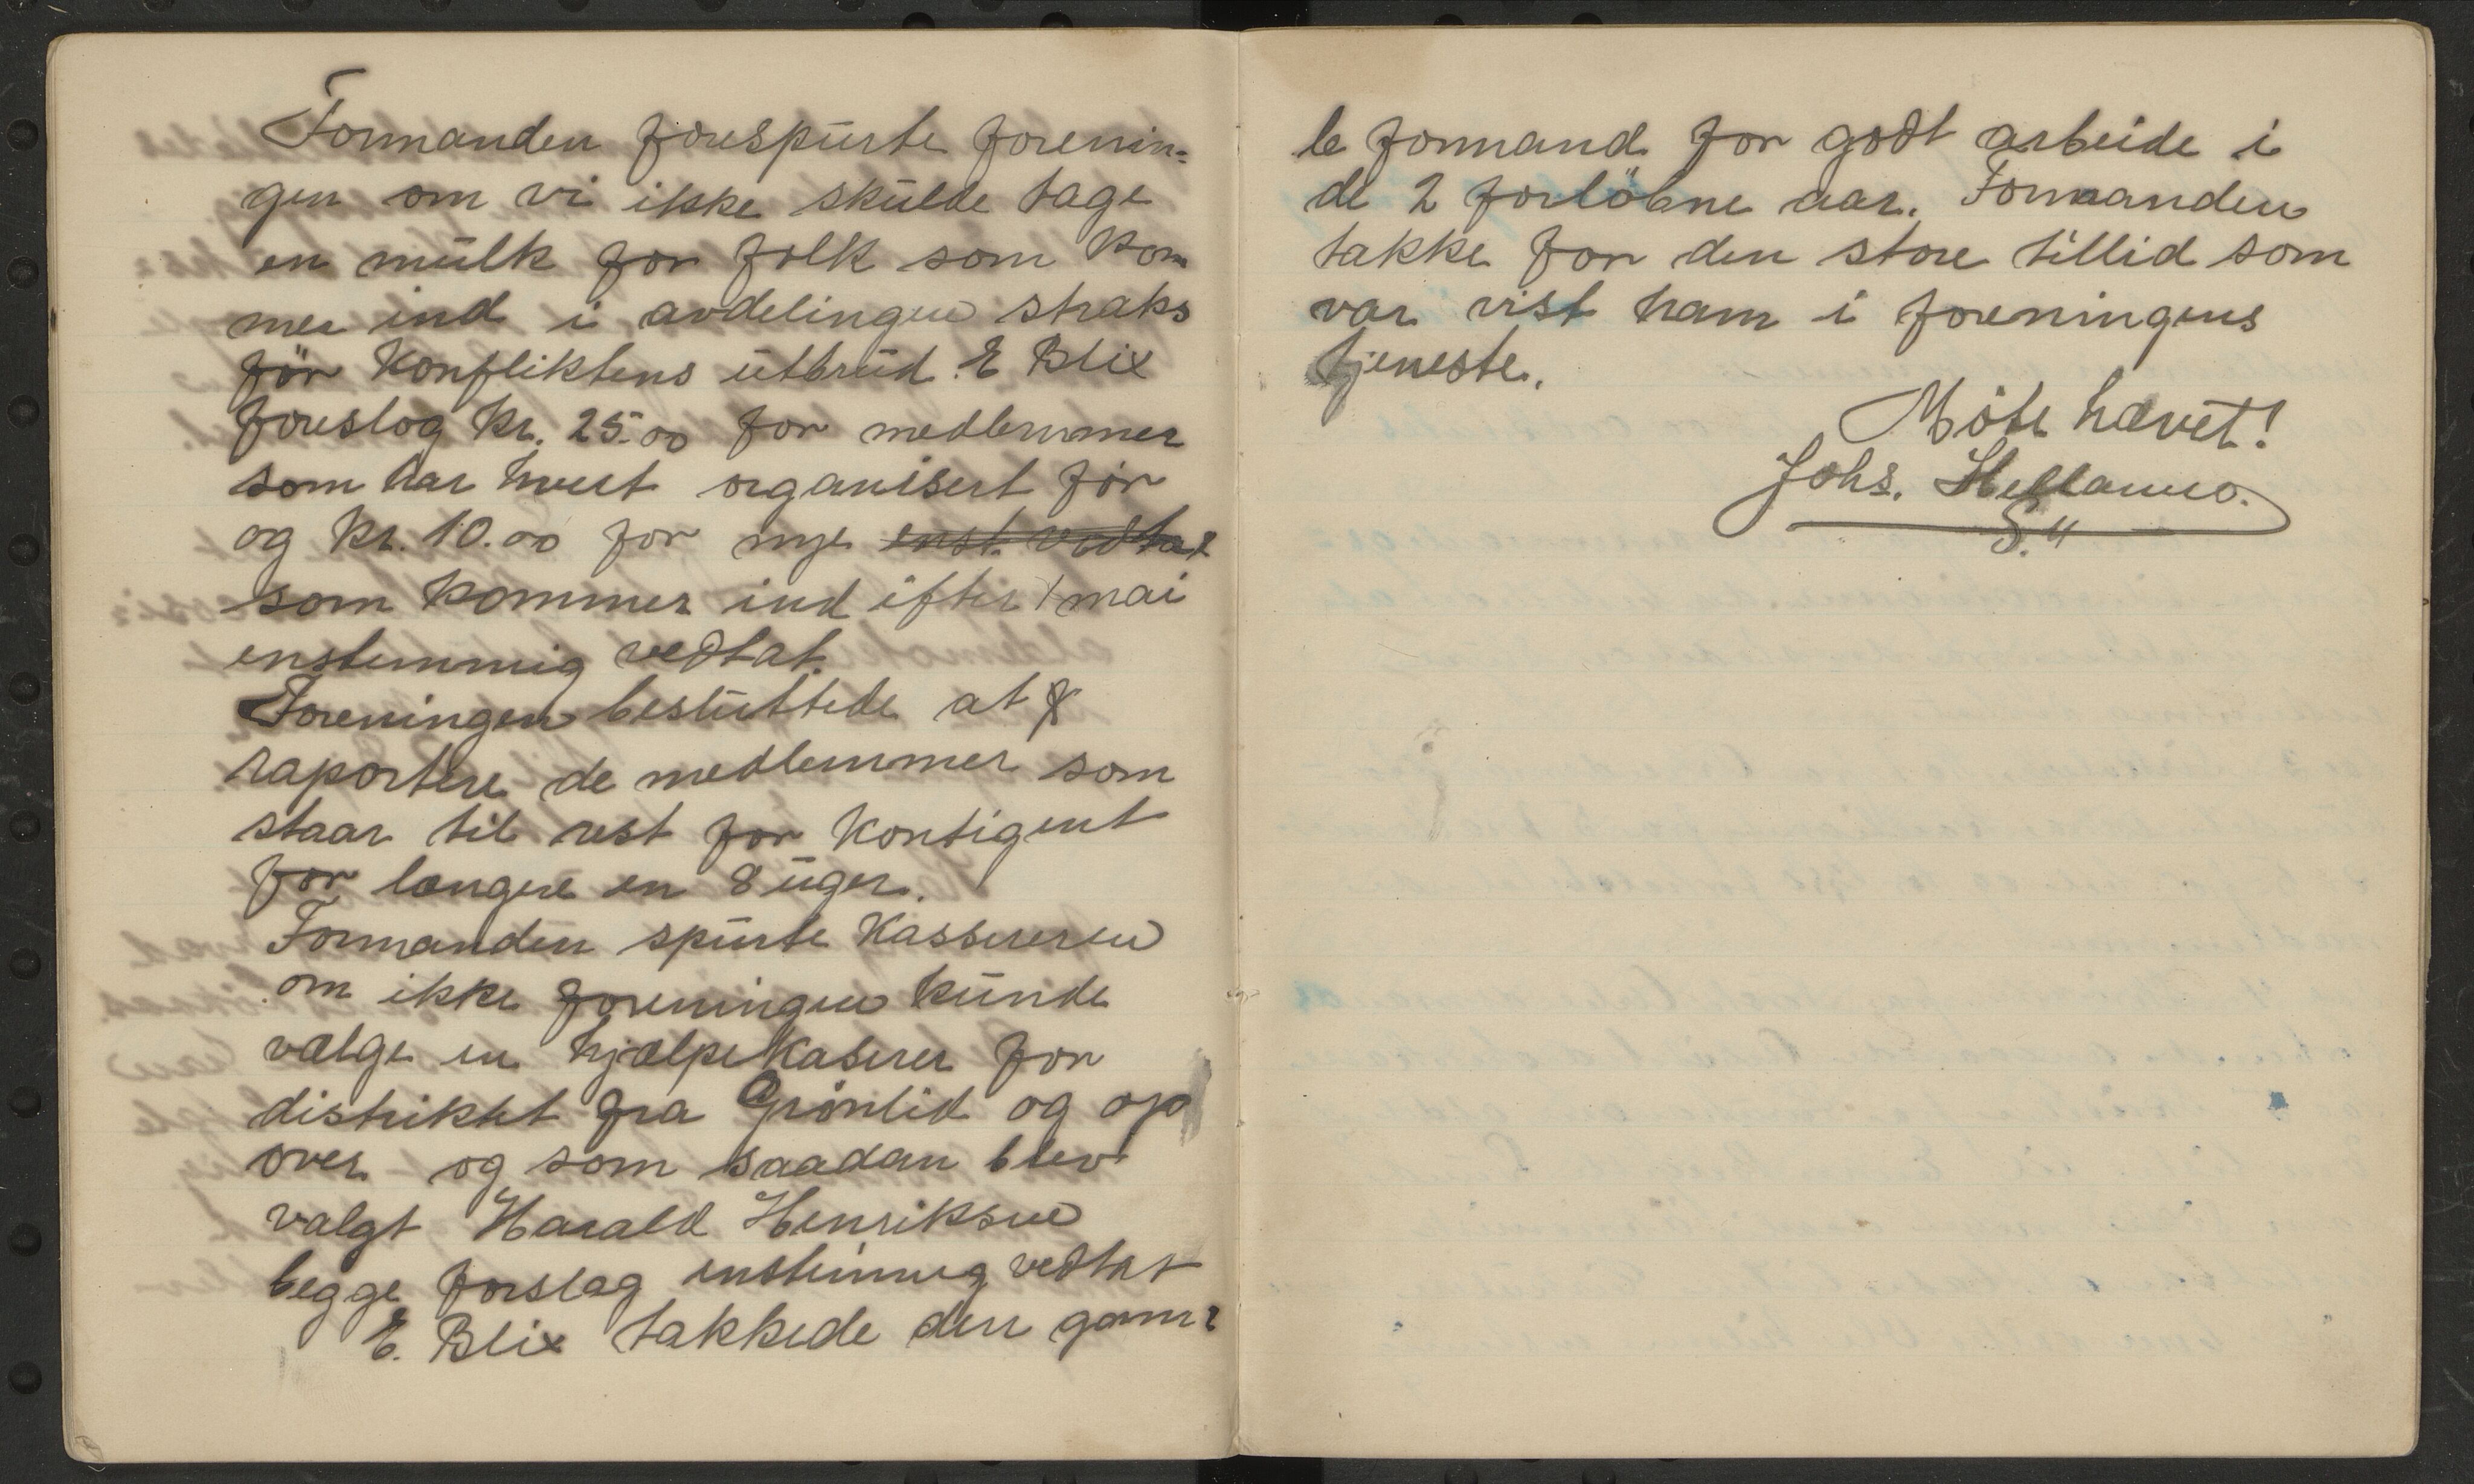 Formanden forespurte forenin=
gen om vi ikke skulde tage
en mulk for folk som kom
mer ind i avdelingen straks
før Konfliktens utbrud. E Blix
foreslog kr. 25.00 for medlemmer
som har hvert organisert før
og kr. 10.00 for nye enst. vedtat
som kommer ind efter 1 mai
enstemmig vedtat.
Foreningen besluttede at
raportere de medlemmer som
staar til rest for Kontigent
for længere en 8 uger.
Formanden spurte Kassereren
om ikke foreningen kunde
vælge en hjælpekaserer for
distriktet fra Grønlid og op
over og som saadan blev
valgt Harald Henriksen
begge forslag enstemmig vedtat
E. Blix takkede den gam=
le formand for godt arbeide i
de 2 forløbne aar. Formanden
takke for den store tillid som
var vist ham i foreningens
tjeneste.
Møte hævet!
Johs.